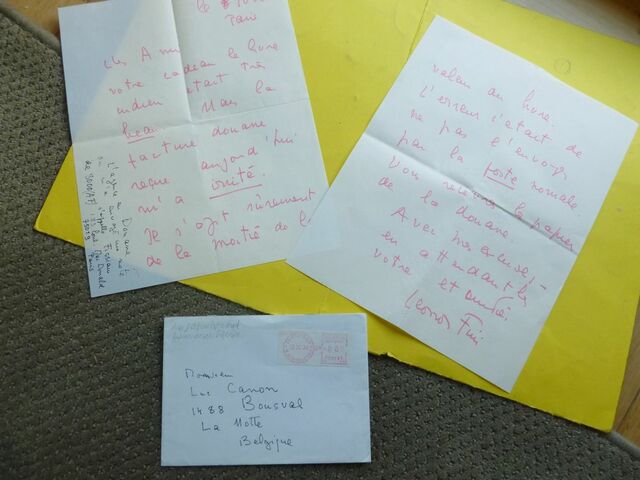 le
Paris
cher Ami
votre cadeau le livre
indien était très
beau Mais la
facture douane
reçue aujourd'hui
m'a irrité.
Il s'agit sûrement
de la moitié de la
L'agence en Douane
qui a envoyé une note
de 8000 AF
s'appelle
75019 Paris
valeur du livre.
L'erreur c'était de
ne pas l'envoyer
par la poste normale
Vous recevrez le papier
de la douane.
Avec mes excuses,
en attendant les
votre et amitiés
Leonor Fini
Monsieur
Luc Canon
1488 Bousval
La Motte
Belgique